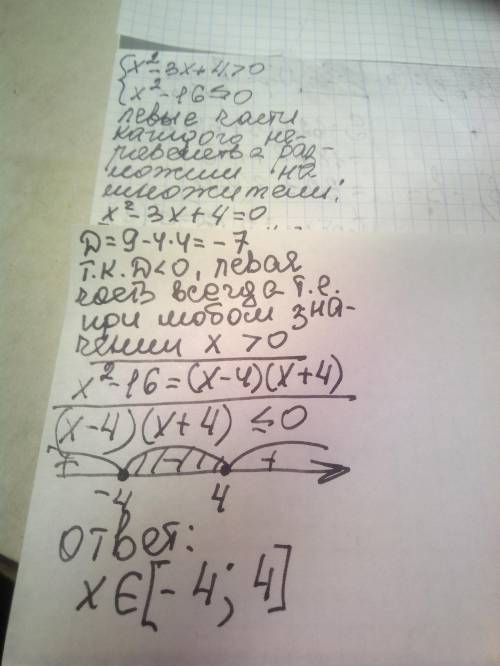 {x²-3x+4>0
{x²-16≤0
левые части
каждого не-
равенства раз-
ложим на
множители:
x²-3x+4=0
Д=9-4·4=-7
т.к. Д<0, левая
часть всегда т.е.
при любом зна-
чении x >0
x²-16=(x-4)(x+4)
(x-4)(x+4) ≤0
+ - +
-4 4
ответ:
x∈[-4; 4]